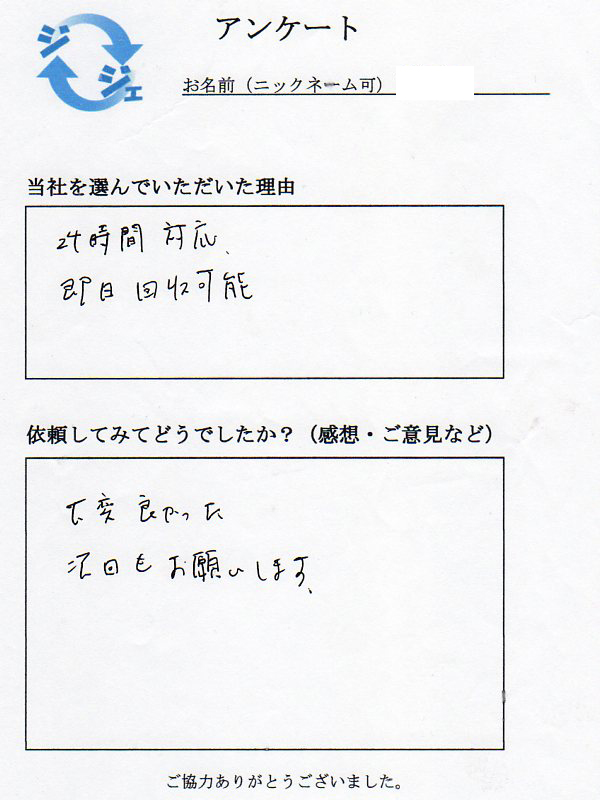 ジジェ
アンケート
お名前（ニックネーム可）
当社を選んでいただいた理由
24時間 対応、
即日 回収可能
依頼してみてどうでしたか？（感想・ご意見など）
大変 良かった
次回も お願いします、
ご協力ありがとうございました。